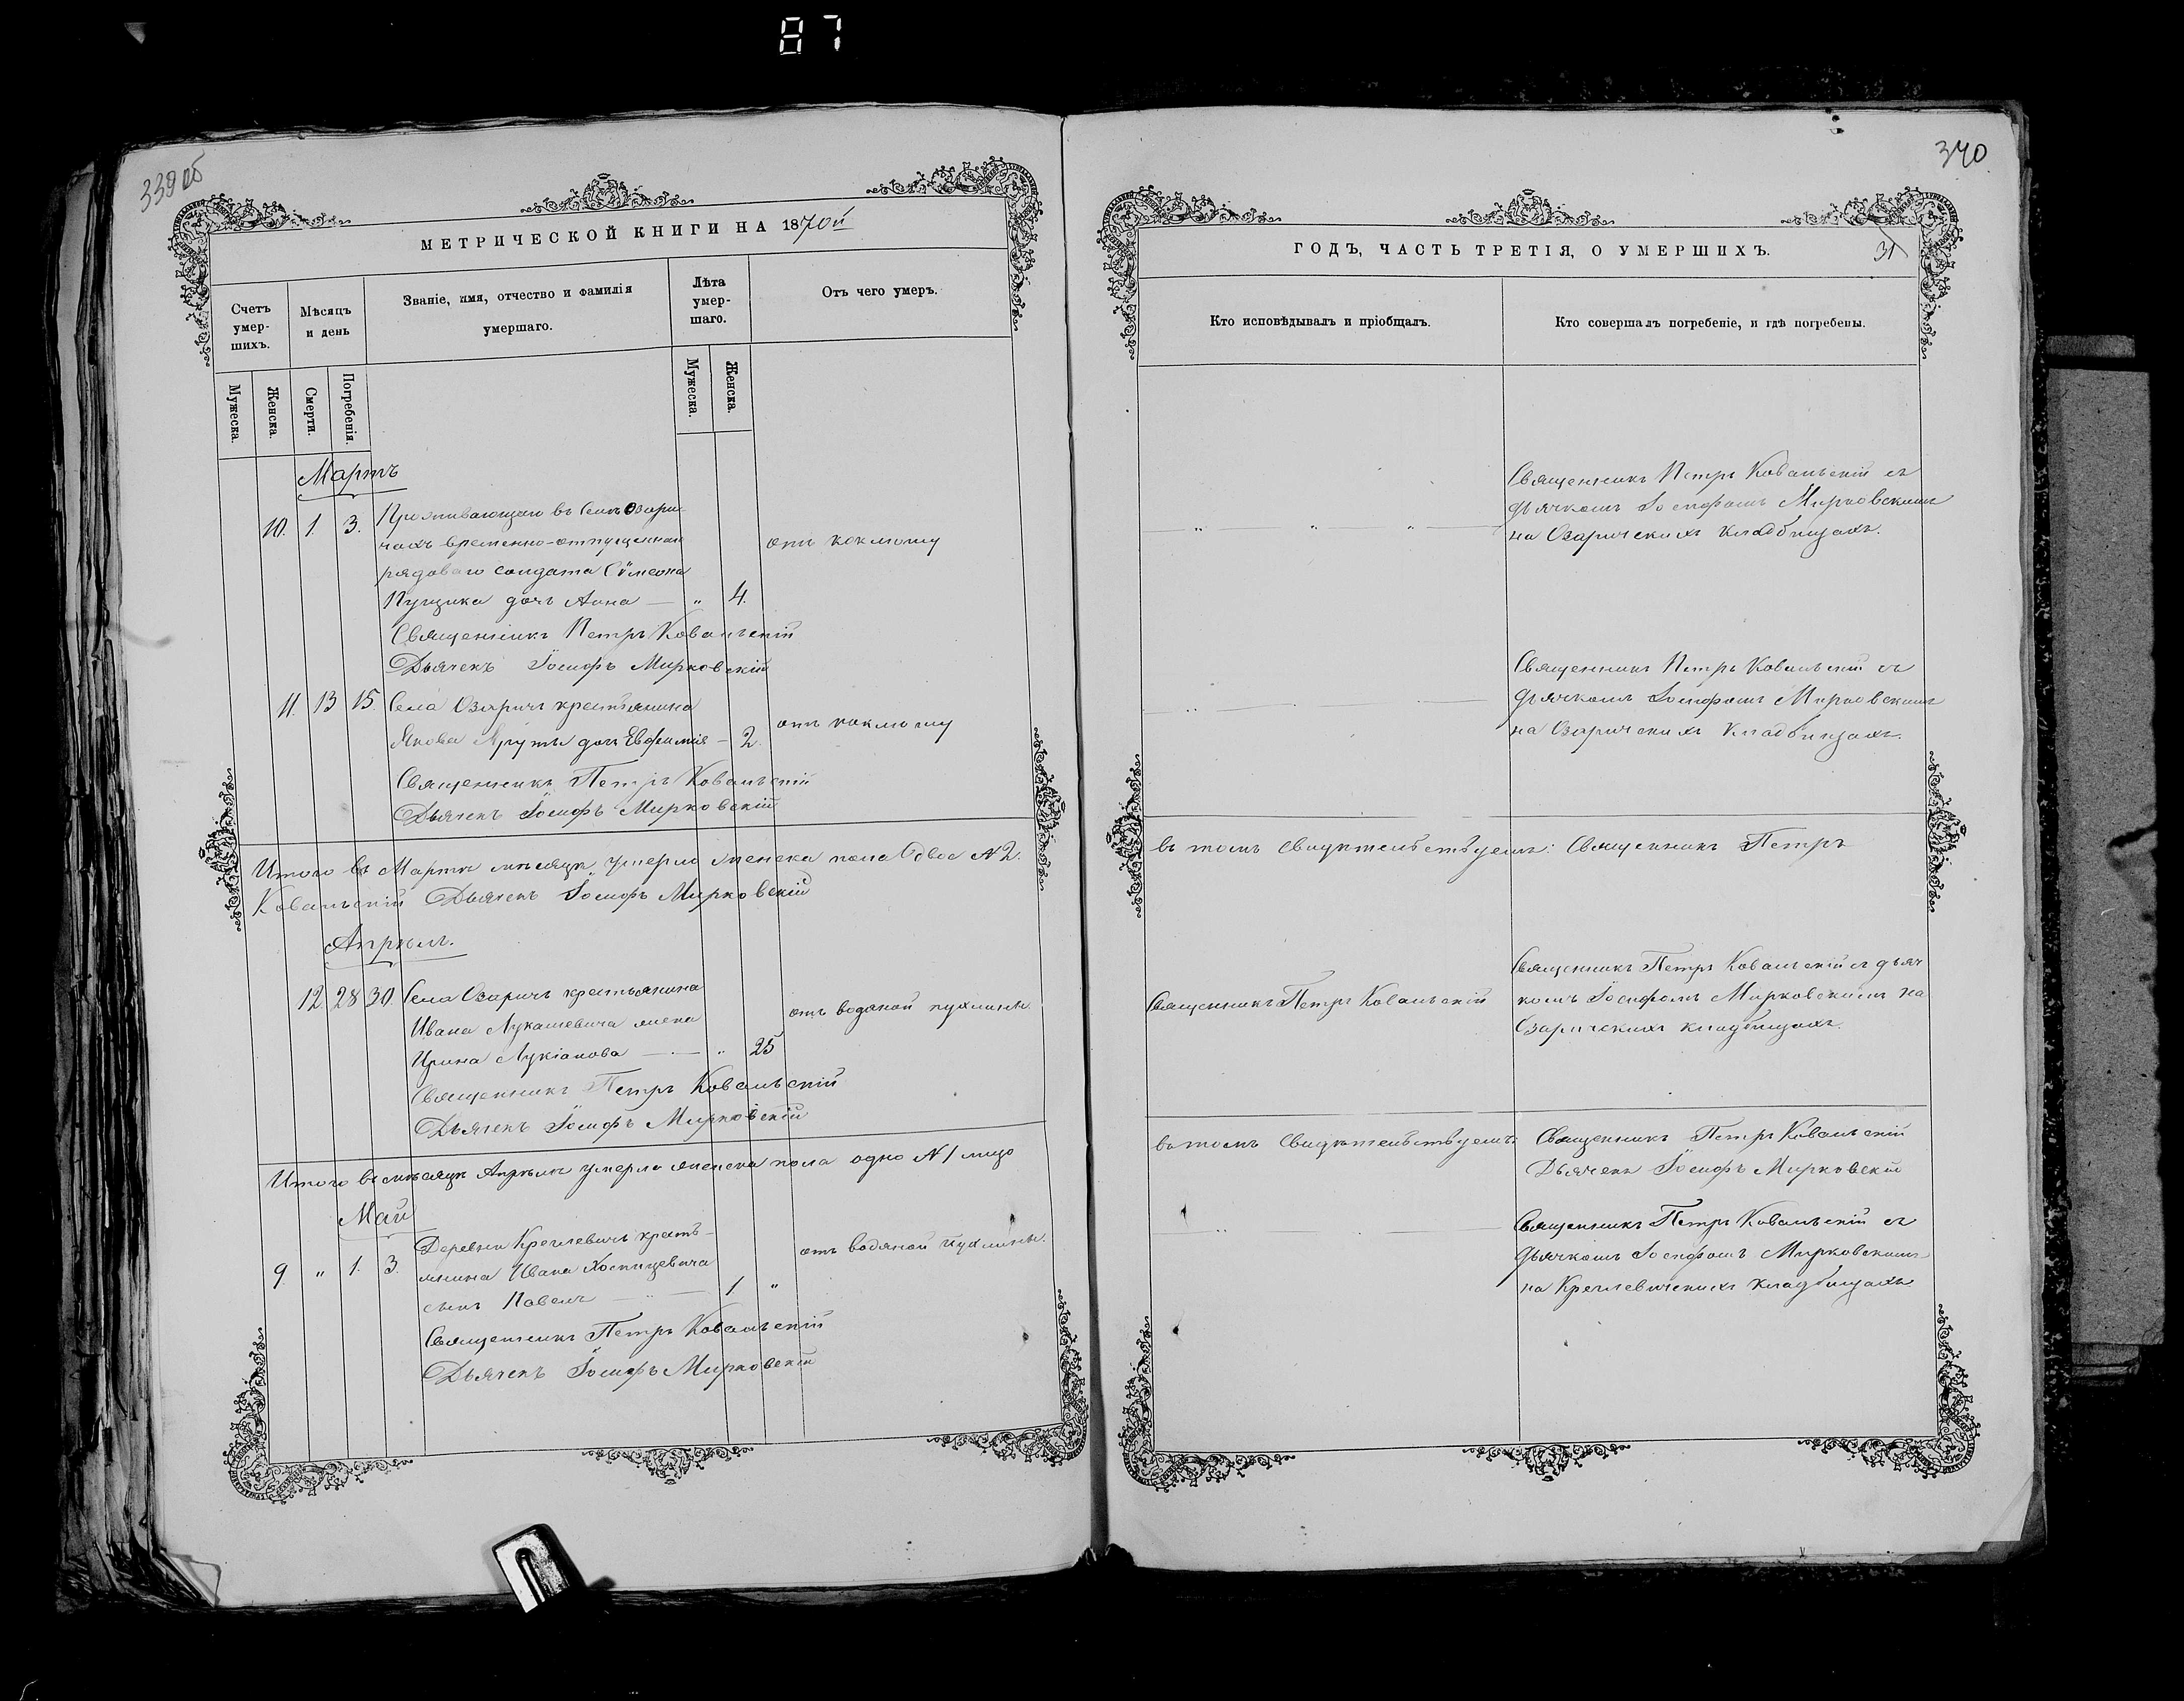 87
339 об
МЕТРИЧЕСКОЙ КНИГИ НА 1870й
Счетъ умер-шихъ.
Мѣсяцъ и день
Званіе, имя, отчество и фамилія умершаго.
Лѣта умер-шаго.
Отъ чего умеръ.
Мужеска.
Женска.
Смерти.
Погребенія.
Мужеска.
Женска.
Мартъ
10. 1. 3. Проживающаго въ Селѣ Озари-
чахъ временно-отпущеннаго
рядоваго солдата Сѵмеона
Пущика дочь Анна — „ 4. отъ коклюшу
Священникъ Петръ Ковальскій
Дьячекъ Іосифъ Мирковскій
11. 13 15. Села Озаричъ крестьянина
Якова Ярути дочь Евфимія — 2. отъ коклюшу
Священникъ Петръ Ковальскій
Дьячекъ Іосифъ Мирковскій
Итого въ Мартѣ мѣсяцѣ умерло женска пола двое N 2.
Ковальскій Дьячекъ Іосифъ Мирковскій
Апрѣль.
12. 28 30. Села Озаричъ крестьянина
Ивана Лукашевича жена
Ирина Лукіанова — „ 25 отъ водяной пухлины.
Священникъ Петръ Ковальскій
Дьячекъ Іосифъ Мирковскій
Итого въ мѣсяцѣ Апрѣлѣ умерло женска пола одно N 1 лицо
Май
9. „ 1. 3. Деревни Кречевичъ кресть-
янина Ивана
сынъ Павелъ — „ — 1 „ отъ водяной пухлины.
Священникъ Петръ Ковальскій
Дьячекъ Іосифъ Мирковскій
340
ГОДЪ, ЧАСТЬ ТРЕТІЯ, О УМЕРШИХЪ.
31
Кто исповѣдывалъ и пріобщалъ.
Кто совершалъ погребеніе, и гдѣ погребены.
Священникъ Петръ Ковальскій съ
дьячкомъ Іосифомъ Мирковскимъ
на Озаричскихъ кладбищахъ.
Священникъ Петръ Ковальскій съ
дьячкомъ Іосифомъ Мирковскимъ
на Озаричскихъ кладбищахъ.
въ томъ свидѣтельствуемъ: Священникъ Петръ
Священникъ Петръ Ковальскій
Священникъ Петръ Ковальскій съ дьяч
комъ Іосифомъ Мирковскимъ на
Озаричскихъ кладбищахъ.
въ томъ свидѣтельствуемъ: Священникъ Петръ Ковальскій
Дьячекъ Іосифъ Мирковскій
Священникъ Петръ Ковальскій съ
дьячкомъ Іосифомъ Мирковскимъ
на Кречевичскихъ кладбищахъ